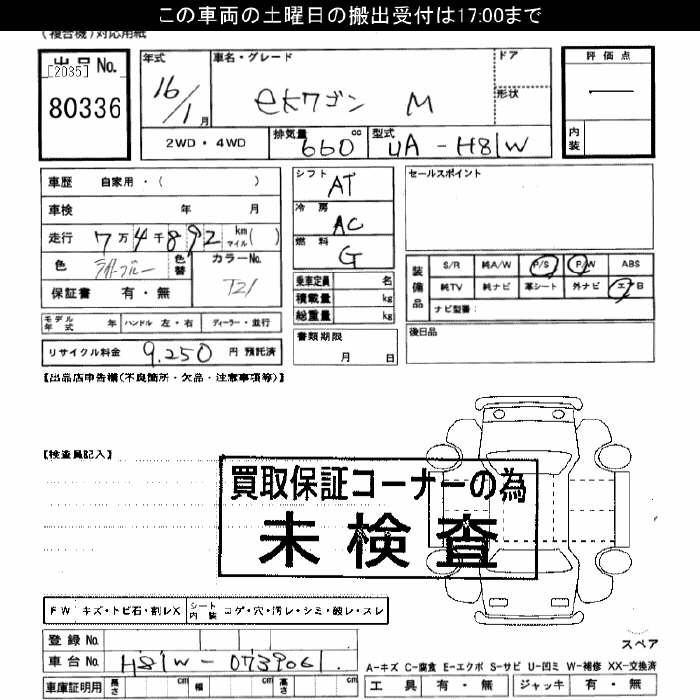 この車両の土曜日の搬出受付は17:00まで
(複合機)対応用紙
出品No.
[2035]
80336
年式
16/1月
車名・グレード
ekワゴン M
ドア
形状
評価点
内装
2WD・4WD
排気量 660 cc
型式 UA-H81W
車歴 自家用・( )
車検 年 月
走行 7万4千892 km マイル( )
色 ライトブルー 色替 カラーNo. T21
保証書 有・無
モデル年式 年 ハンドル 左・右 ディーラー・並行
リサイクル料金 9,250 円 預託済
シフト AT
冷房 AC
燃料 G
乗車定員 名
積載量 kg
総重量 kg
書類期限
月 日
セールスポイント
装備品
S/R 純A/W P/S P/W ABS
純TV 純ナビ 革シート 外ナビ エアB
ナビ型番:
後日品
【出品店申告欄(不良箇所・欠品・注意事項等)】
【検査員記入】
買取保証コーナーの為
未検査
FW キズ・トビ石・割レX シート内装 コゲ・穴・汚レ・シミ・破レ・スレ
登録No.
車台No. H81W-0739061
車庫証明用 長さ cm 幅 cm 高さ cm
スペア
A-キズ C-腐食 E-エクボ S-サビ U-凹ミ W-補修 XX-交換済
工具 有・無 ジャッキ 有・無